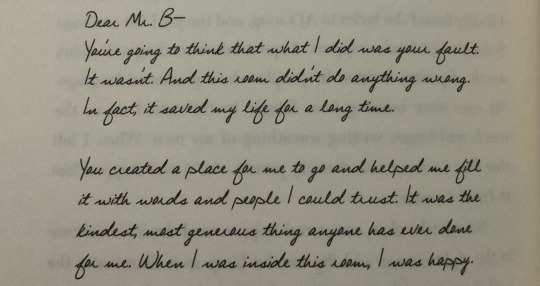 Dear Mr. B—
You're going to think that what I did was your fault.
It wasn't. And this room didn't do anything wrong.
In fact, it saved my life for a long time.
You created a place for me to go and helped me fill
it with words and people I could trust. It was the
kindest, most generous thing anyone has ever done
for me. When I was inside this room, I was happy.